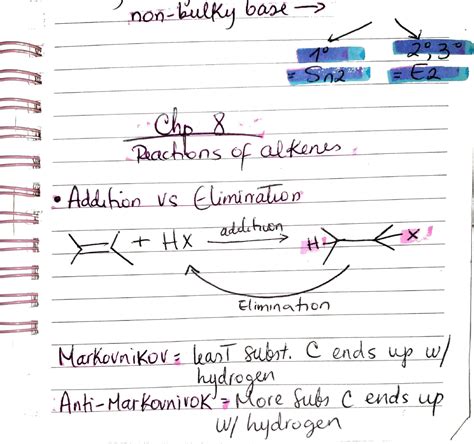 non-bulky base →
1° 2°, 3°
= Sn2 = E2
Chp 8
Reactions of alkenes
• Addition vs Elimination
+ HX addition H X
Elimination
Markovnikov = least subst. C ends up w/
hydrogen
Anti-Markovnivok = More Subs C ends up
w/ hydrogen